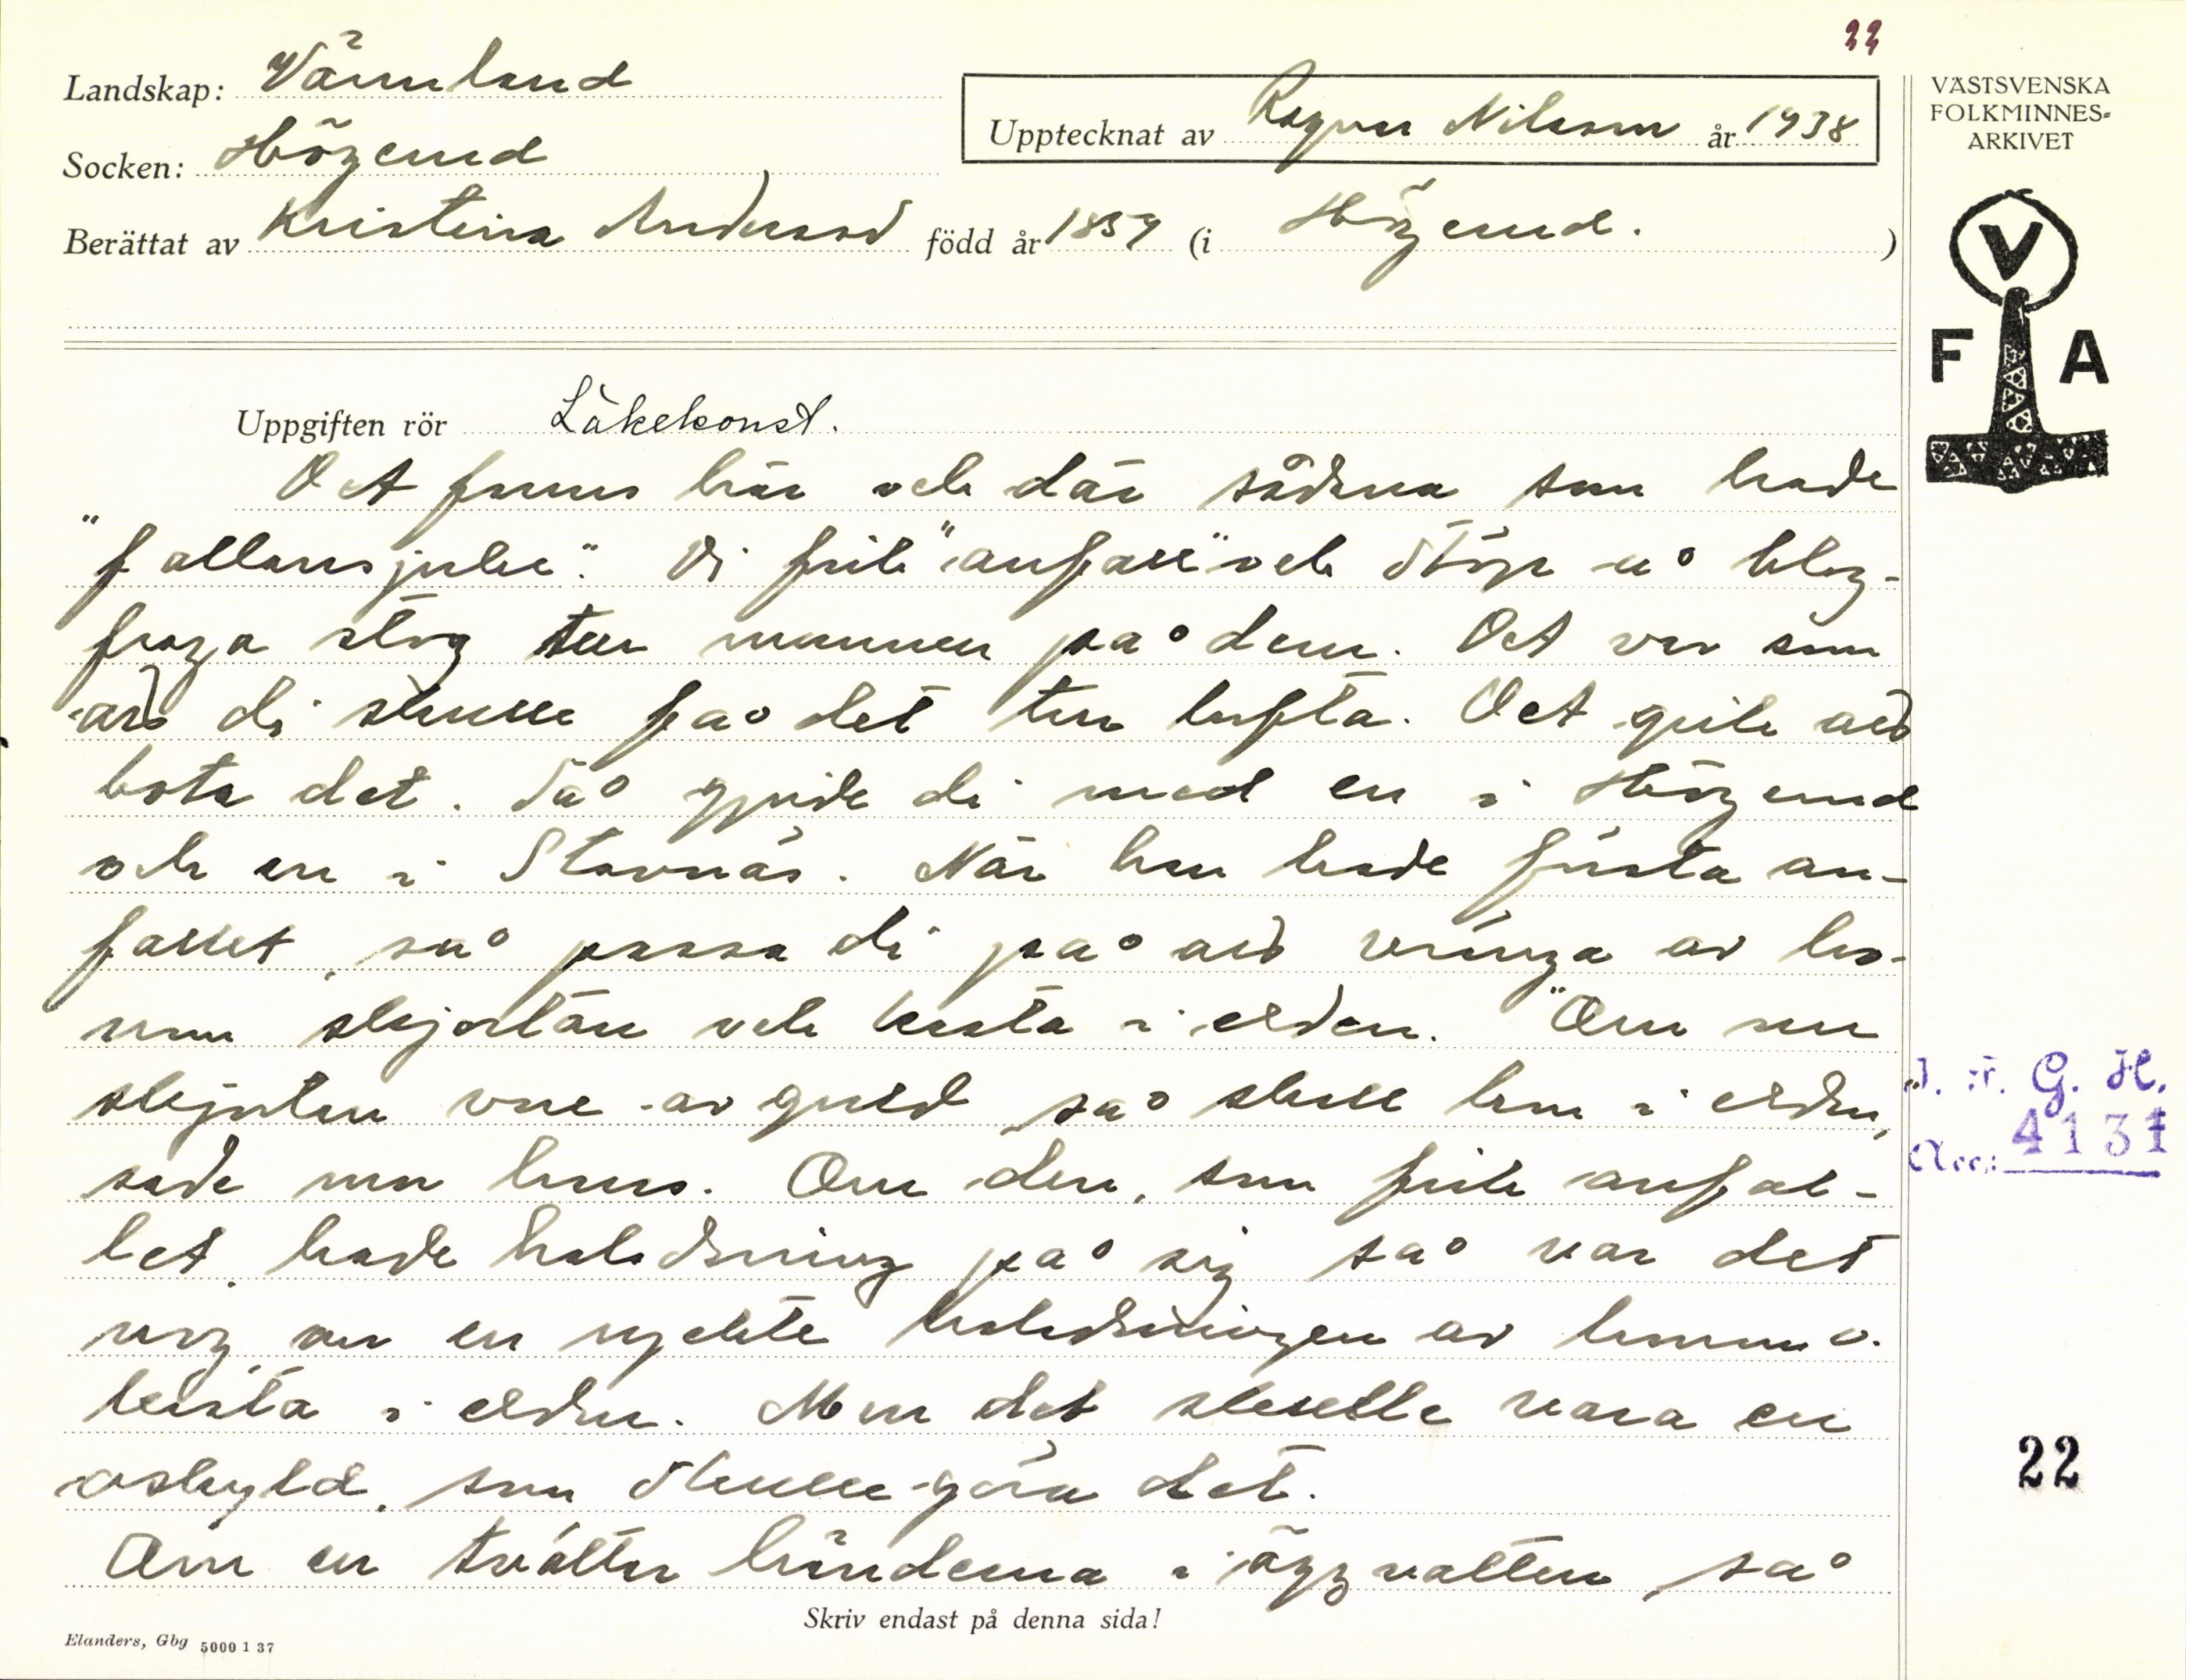 33
Landskap: Värmland
Upptecknat av Ragnar Nilsson år 1938
Socken: Högerud
Berättat av Kristina Andersson född år 1859 (i Högerud. )
VÄSTSVENSKA
FOLKMINNES-
ARKIVET
V
F A
Uppgiften rör Läkekonst.
Det fanns här och där sådana som hade
"fallansjuke". Di fick "anfall" och stöp å
fraga stog ter munnen på dem. Det var som
att di skulle få det ter lufta. Det gick att
bota det. Så gjorde di med en i Högerud
och en i Stavnäs. När han hade första an-
fallet, så passa di på att vränga av ho-
nom skjortan och kasta i elden. "Om nu
skjortan vore av guld så skall ham i elden,
sade mor hans. Om den, som fick anfal-
let, hade halsduk på sig så var det
nog om en ryckte av honom o.
kasta i elden. Men det skulle vara en
oskyld, som skulle göra det.
Om en tvättar händerna i äggvatten, så
Skriv endast på denna sida!
Elanders, Gbg 5000 1 37
I. F. G. H.
Acc.: 4131
22